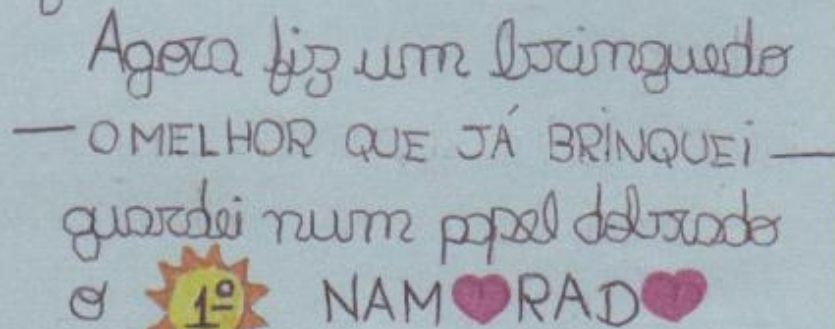 Agora fiz um brinquedo
— O MELHOR QUE JÁ BRINQUEI —
guardei num papel dobrado
o 1º NAMORADO